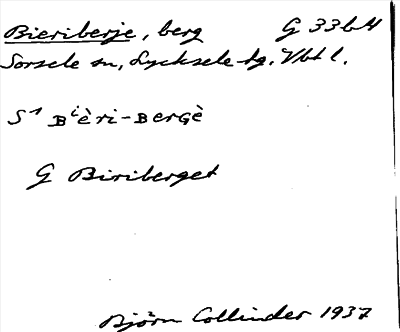 Bieriberje, berg G 33b4
Sorsele sn, Lycksele tg. Vbt l.
S¹ Bⁱèri-Bergè
G Biriberget
Björn Collinder 1937